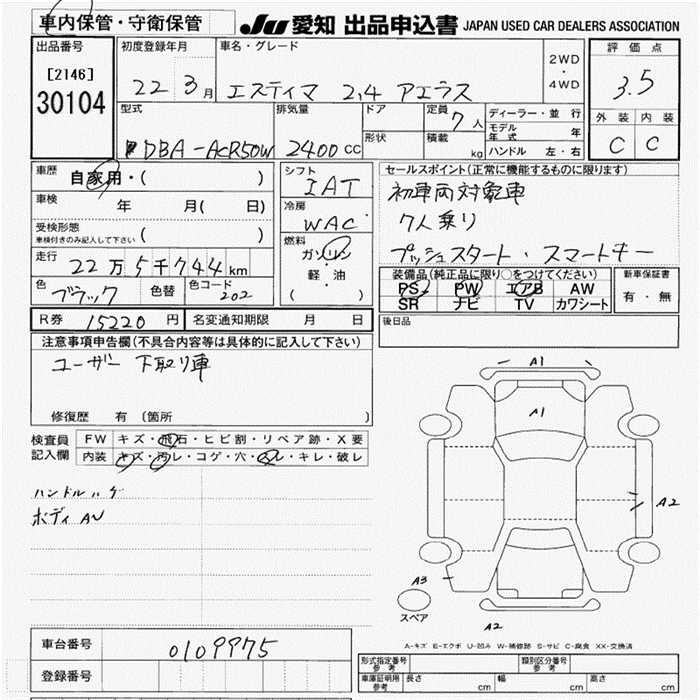 車内保管・守衛保管 JU愛知 出品申込書 JAPAN USED CAR DEALERS ASSOCIATION
出品番号 初度登録年月 車名・グレード 評価点
[2146] 22 3月 エスティマ 2,4 アエラス 2WD・4WD 3.5
30104 型式 排気量 ドア 定員 7人 ディーラー・並行 外装 内装
DBA-ACR50W 2400cc 形状 積載 kg モデル年式 年 C C
ハンドル 左・右
車歴 自家用・( ) シフト IAT セールスポイント(正常に機能するものに限ります)
車検 年 月( 日) 冷房 WAC 初車両対象車
受検形態 車検付きのみ記入して下さい ( ) 燃料 ガソリン 7人乗り
走行 22万5千744km 軽・油 プッシュスタート・スマートキー
色 ブラック 色替 色コード 202 ( ) 装備品(純正品に限り○をつけてください) 新車保証書
PS PW エアB AW 有・無
SR ナビ TV カワシート
R券 15220円 名変通知期限 月 日 後日品
注意事項申告欄(不具合内容等は具体的に記入して下さい)
ユーザー 下取り車
修復歴 有 (箇所 )
検査員記入欄 FW キズ・飛石・ヒビ割・リペア跡・X要
内装 キズ・汚レ・コゲ・穴・スレ・キレ・破レ
ハンドルハゲ
ボディAU
A1
A1
A2
A3
スペア
A2
A-キズ E-エクボ U-凹み W-補修跡 S-サビ C-腐食 XX-交換済
車台番号 0109975
型式指定番号 参考 類別区分番号 参考
登録番号 車庫証明用 参考 長さ cm 幅 cm 高さ cm